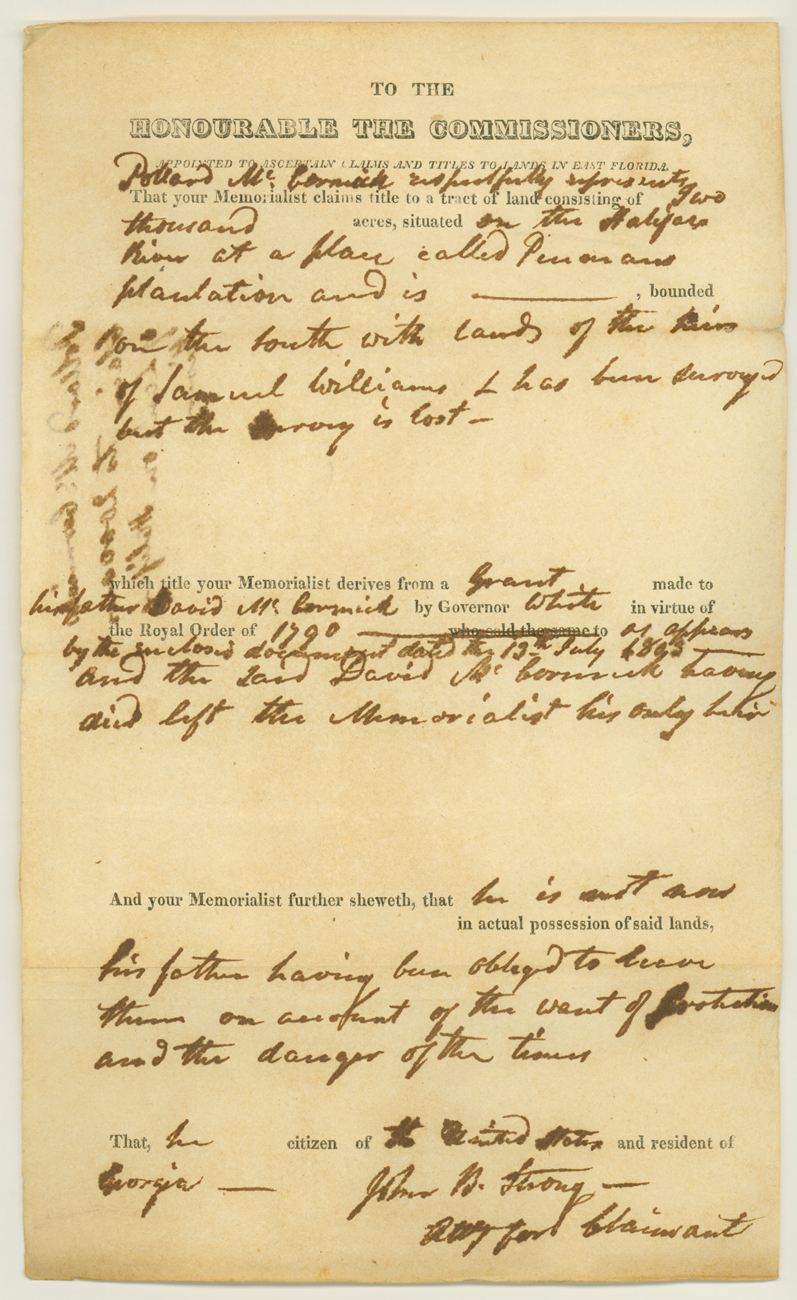 TO THE
HONOURABLE THE COMMISSIONERS,
APPOINTED TO ASCERTAIN CLAIMS AND TITLES TO LANDS IN EAST FLORIDA.
Pollard Mc. Cormick respectfully represents
That your Memorialist claims title to a tract of land consisting of Two
thousand acres, situated on the Halifax
River at a place called Penmans
plantation and is ——— , bounded
on the South with lands of the heirs
of Samuel Williams & has been surveyed
but the survey is lost –
which title your Memorialist derives from a Grant made to
his father David Mc. Cormick by Governor White in virtue of
the Royal Order of 1790 ——— who sold the same to as appears
by the enclosed document dated the 13th July 1803
and the said David Mc Cormick having
died left the Memorialist his only heir
And your Memorialist further sheweth, that he is not now
in actual possession of said lands,
his father having been obliged to leave
them on account of the want of protection
and the danger of the times
That, he citizen of the United States and resident of
Georgia — John B. Strong —
Atty for Claimant